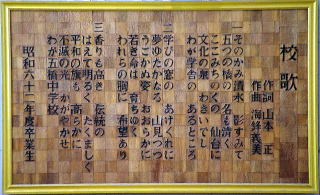 校歌
作詞 山本 正
作曲 海鋒義美
一 そのかみ清水 影すみて
五つの橋の 名も清く
ここみちのくの 仙台に
文化の泉 わきいでし
わが学舎の あるところ
二 学びの窓の あけくれに
夢ゆたかなる 山見つつ
うごかぬ姿 おおらかに
若き命は 育ちゆく
われらの胸に 希望あり
三 香りも高き 伝統の
はえて明るく たくましく
平和の旗も 高らかに
不滅の光 かがやかせ
わが五橋中学校
昭和六十一年度卒業生